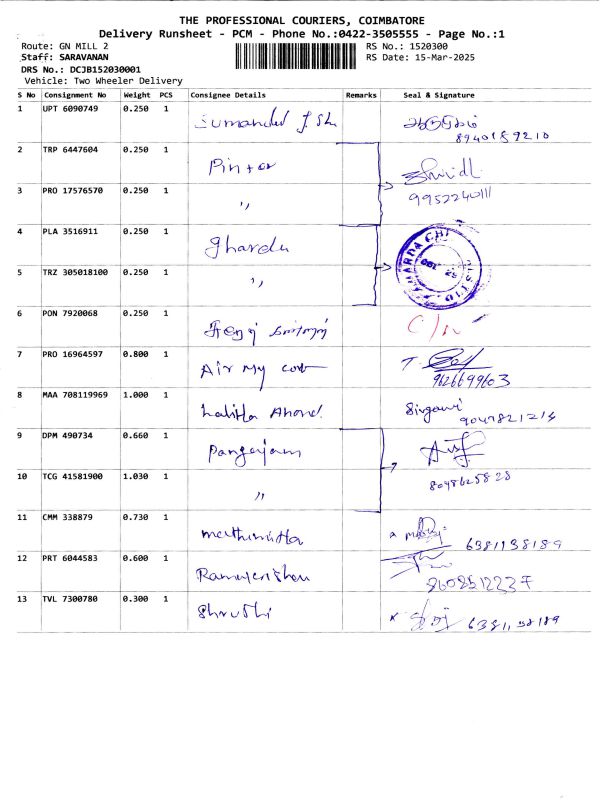 THE PROFESSIONAL COURIERS, COIMBATORE
Delivery Runsheet - PCM - Phone No.:0422-3505555 - Page No.:1
Route: GN MILL 2 RS No.: 1520300
Staff: SARAVANAN RS Date: 15-Mar-2025
DRS No.: DCJB152030001
Vehicle: Two Wheeler Delivery
S No Consignment No Weight PCS Consignee Details Remarks Seal & Signature
1 UPT 6090749 0.250 1 8940159210
2 TRP 6447604 0.250 1 Pintar
3 PRO 17576570 0.250 1 〃 9952240111
4 PLA 3516911 0.250 1 Ghardu
5 TRZ 305018100 0.250 1 〃
6 PON 7920068 0.250 1
7 PRO 16964597 0.800 1 Air My 9626699603
8 MAA 708119969 1.000 1 Lalitha 9047821214
9 DPM 490734 0.660 1 Pangajam
10 TCG 41581900 1.030 1 〃 8098625828
11 CMM 338879 0.730 1 6381138189
12 PRT 6044583 0.600 1 8608512237
13 TVL 7300780 0.300 1 Shruthi 6381138189